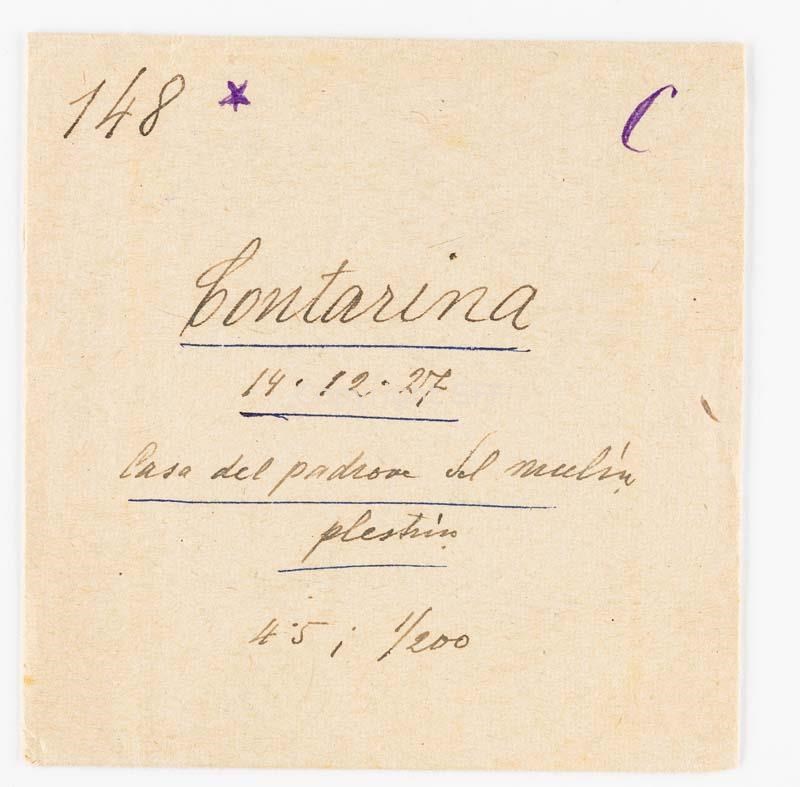 148 * C
Contarina
14.12.27
Casa del padrone del mulin
plestrin
4.5; 1/200